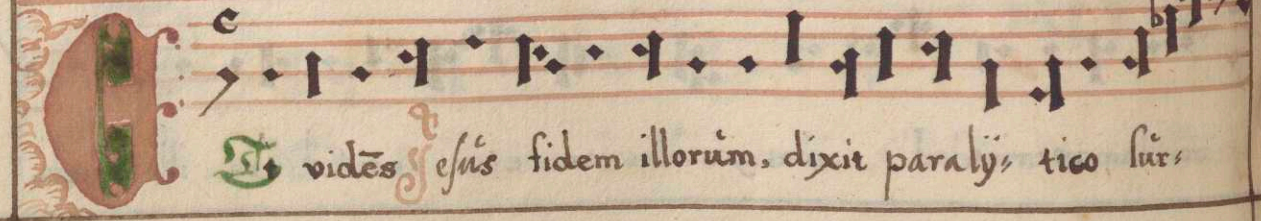 Et vidēs Jesus fidem illorum. dixit paralÿ= tico sur=